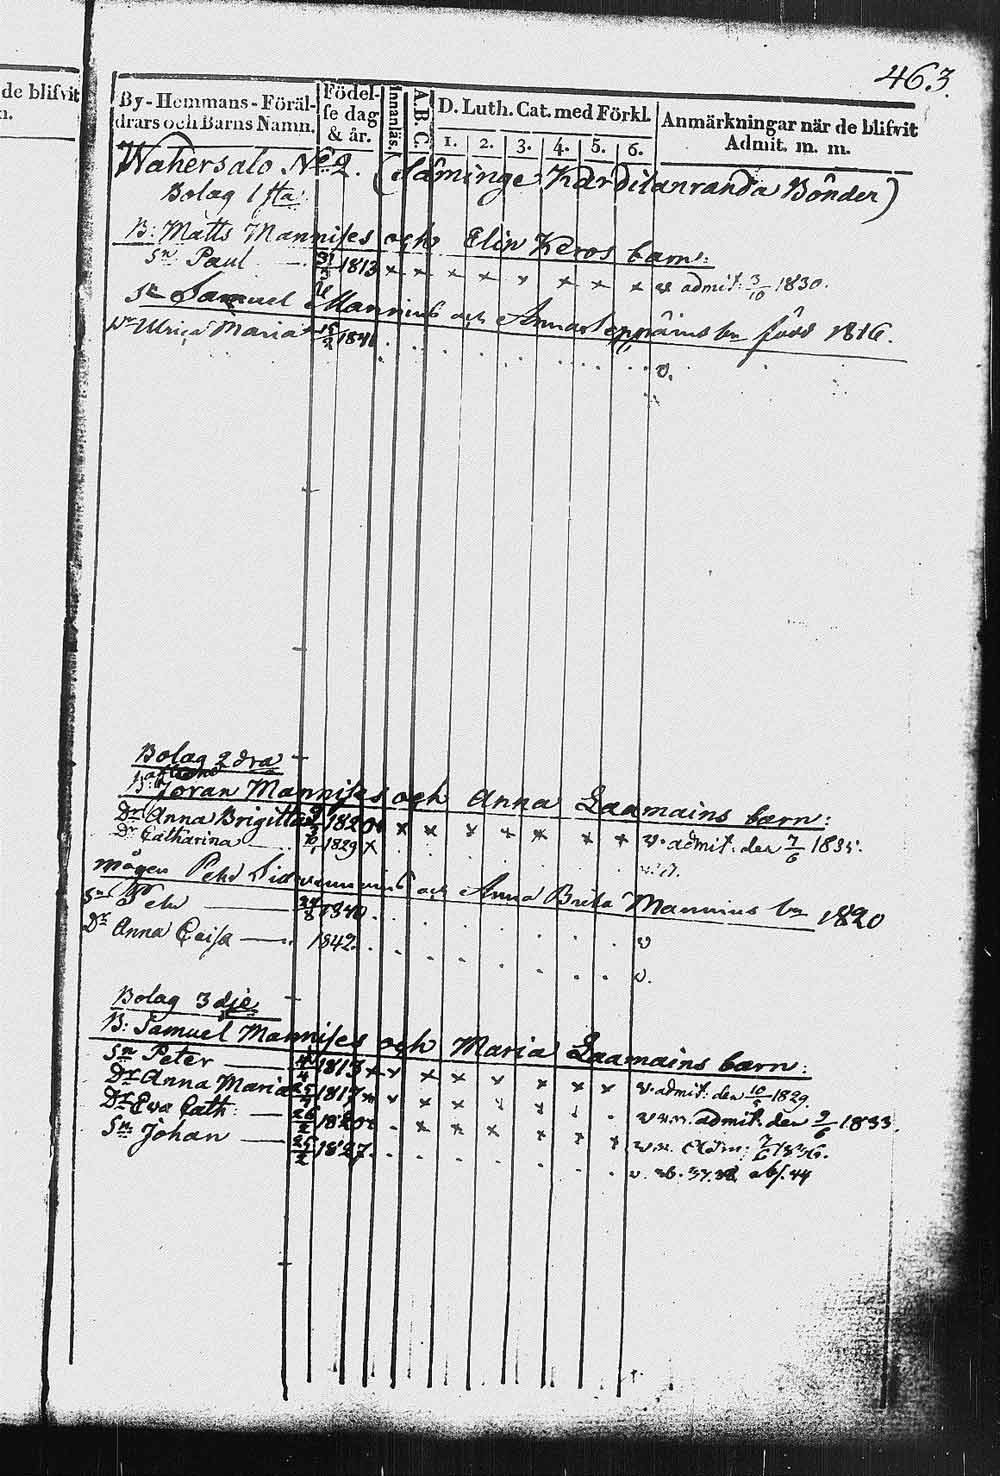 463.
de blifvit
n.
By-Hemmans-Föräl-
drars och Barns Namn.
Födel-
se dag
& år.
Innanläs.
A.B.C.
D. Luth. Cat. med Förkl.
1. 2. 3. 4. 5. 6.
Anmärkningar när de blifvit
Admit. m. m.
Wahersalo No 2. (Säminge Kardilanranda Bönder)
Bolag 1sta
B: Matts Mannises och Elin Keros barn:
Sn Paul 1813 x x x x x x x x v admit: 3/10 1830.
Sn Samuel Mannius och Anna bn född 1816.
Dr Ulrica Maria 15/2 1841 v.
Bolag 2dra
B: Jöran Mannises och Anna Laamains barn:
Dr Anna Brigitta 1820 x x x x x x x v. admit. den 7/6 1835.
Dr Catharina 1829 x
mågen Pehr och Anna Brita Mannius bn 1820
Sn Pehr 1840. v
Dr Anna Caisa 1842. v.
Bolag 3dje
B: Samuel Mannises och Maria Laamains barn:
Sn Peter 1813 x x x x x x x v. admit: den 1829.
Dr Anna Maria 1817 x x x admit: den 9/6 1833.
Dr Eva Cath: 26/2 1820 x x x Adm: 7/6 1836.
Sn Johan 25/2 1827. v. 37.38 abs. 44